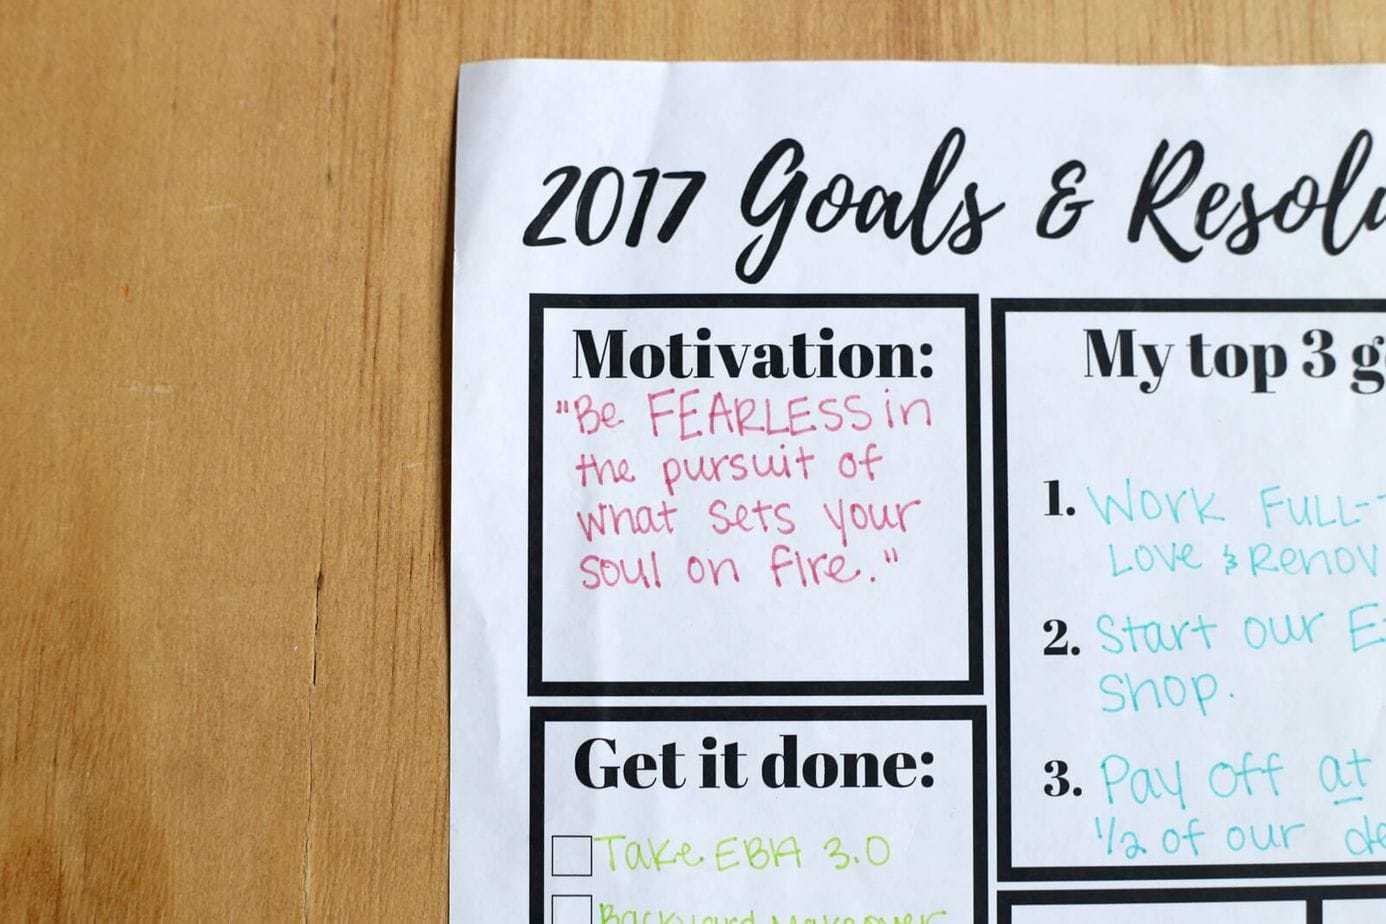 2017 Goals & Resolu
Motivation:
"Be FEARLESS in
the pursuit of
what sets your
soul on fire."
Get it done:
Take EBA 3.0
Backyard makeover
My top 3 g
1. Work FULL-
Love & Renov
2. Start our E
shop.
3. Pay off at
1/2 of our de